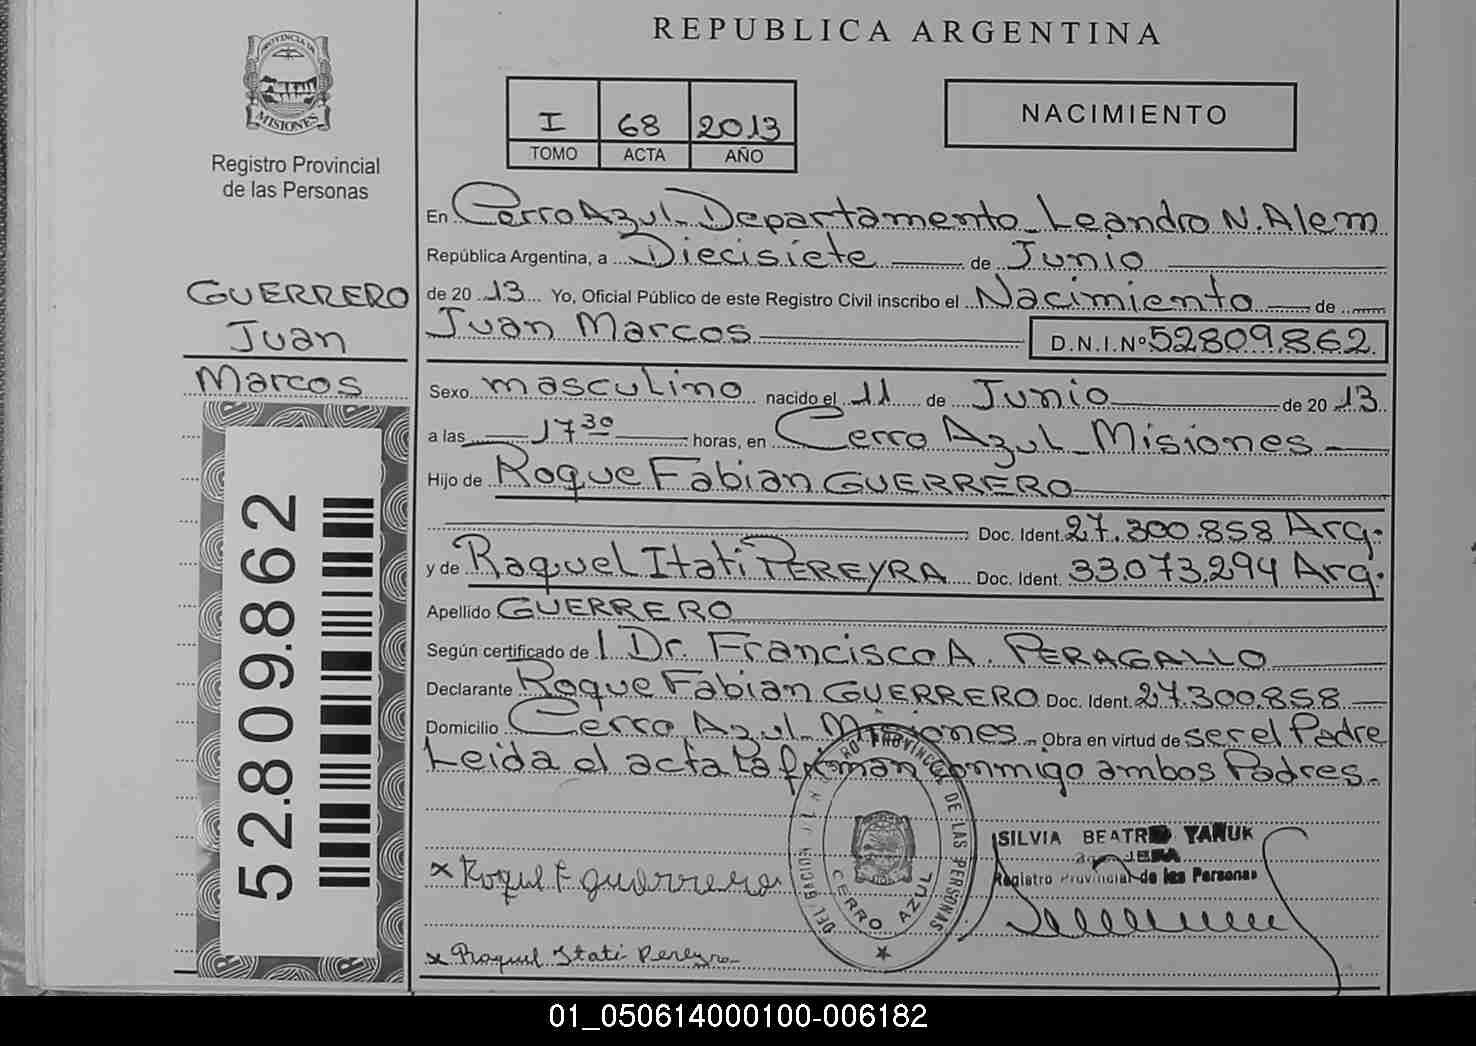 REPUBLICA ARGENTINA
PROVINCIA DE
MISIONES
Registro Provincial
de las Personas
I 68 2013
TOMO ACTA AÑO
NACIMIENTO
En Cerro Azul - Departamento Leandro N. Alem
República Argentina, a Diecisiete de Junio
de 20 13 Yo, Oficial Público de este Registro Civil inscribo el Nacimiento de
Juan Marcos D.N.I.Nº 52809.862
GUERRERO
Juan
Marcos
Sexo masculino nacido el 11 de Junio de 20 13
a las 17 30 horas, en Cerro Azul - Misiones
Hijo de Roque Fabian GUERRERO
Doc. Ident. 27.300.858 Arg.
y de Raquel Itati PEREYRA Doc. Ident. 33.073.294 Arg.
Apellido GUERRERO
Según certificado de l Dr. Francisco A. PERAGALLO
Declarante Roque Fabian GUERRERO Doc. Ident. 27.300.858
Domicilio Cerro Azul - Misiones - Obra en virtud de ser el Padre
Leida el acta la firman conmigo ambos Padres.
52.809.862
PROVINCIAL DE LAS PERSONAS
CERRO AZUL
SILVIA BEATRIZ YAÑUK
Registro Provincial de las Personas
x Roque F guerrero
x Raquel Itati Pereyra
01_050614000100-006182